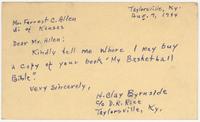 Taylorsville, Ky.
Aug. 9, 1934
Mr. Forrest C. Allen
U. of Kansas
Dear Mr. Allen:
Kindly tell me where I may buy
a copy of your book "My Basketball
Bible".
Very Sincerely,
H. Clay Byrnside
c/o D. R. Rice
Taylorsville, Ky.